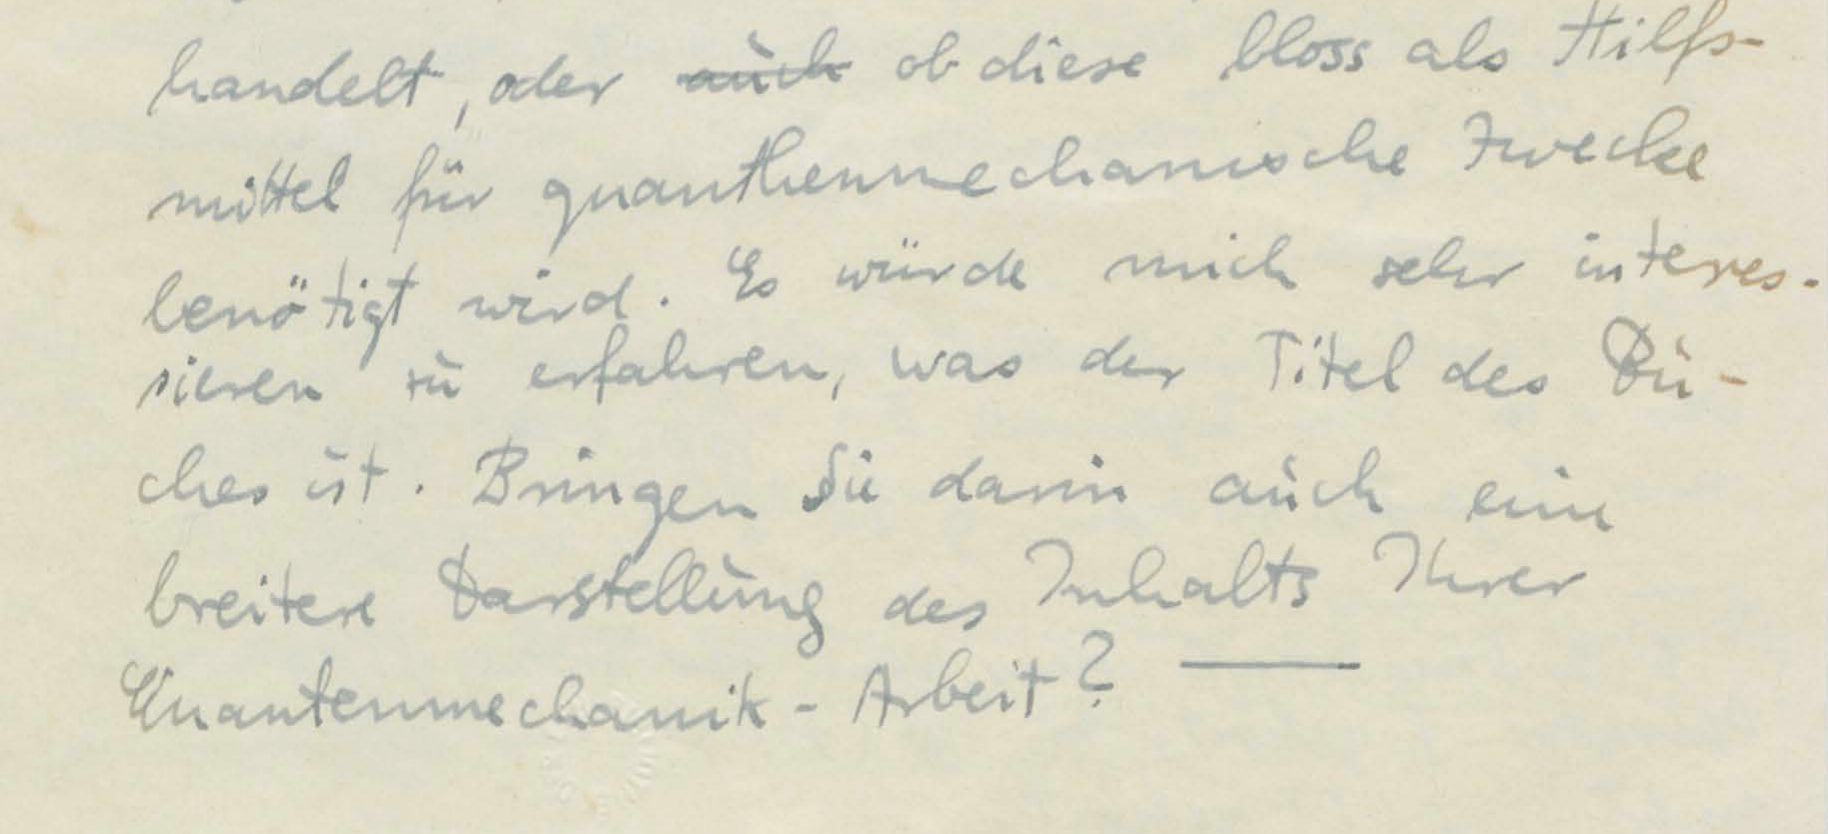 handelt, oder auch ob diese bloss als Hilfs-
mittel für quanthenmechanische Zwecke
benötigt wird. Es würde mich sehr interes-
sieren zu erfahren, was der Titel des Bu-
ches ist. Bringen Sie darin auch eine
breitere Darstellung des Inhalts Ihrer
Quantenmechanik-Arbeit? —